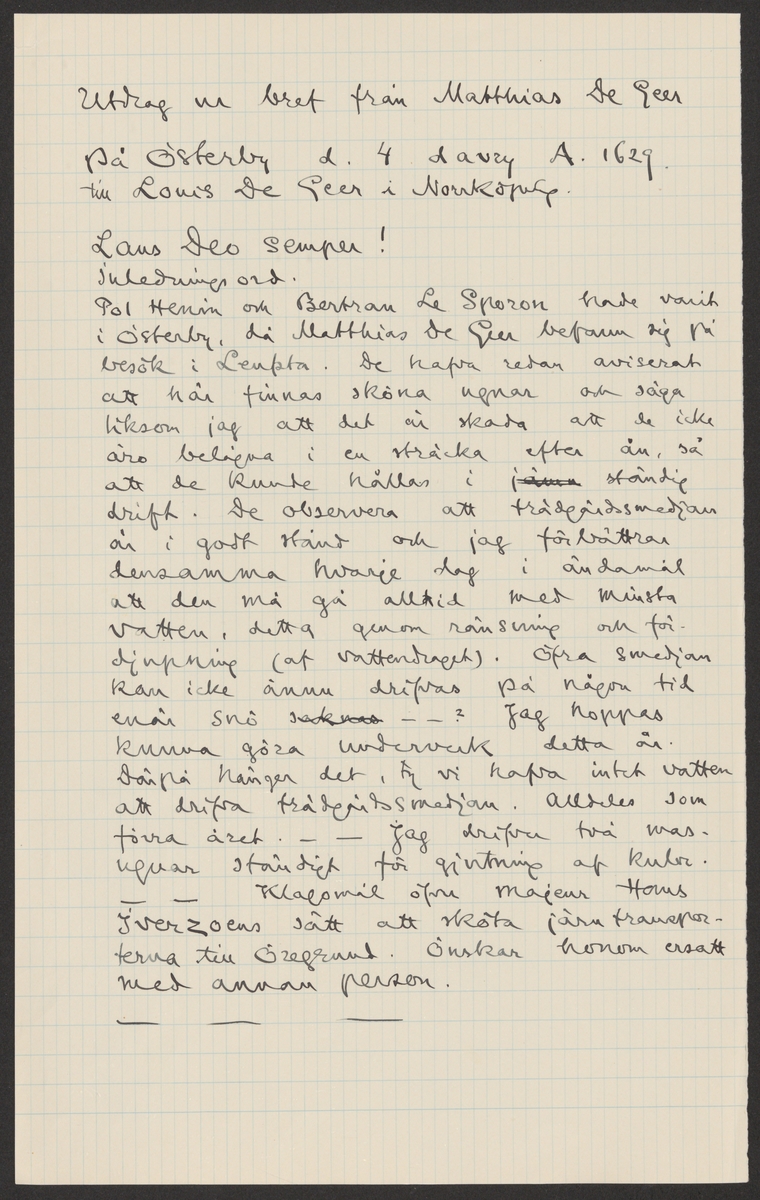 Utdrag ur bref från Matthias De Geer
på Österby d. 4 davzy A. 1629.
till Louis De Geer i Norrköping.
Laus Deo semper!
Inledningsord.
Pol Henin och Bertran Le Sporon hade varit
i Österby, då Matthias De Geer befann sig på
besök i Leufsta. De hafva redan aviserat
att här finnas sköna ugnar och säga
liksom jag att det är skada att de icke
äro belägna i en sträcka efter ån, så
att de kunde hållas i jämn ständig
drift. De observera att trädgårdssmedjan
är i godt stånd och jag förbättrar
densamma hvarje dag i ändamål
att den må gå alltid med minsta
vatten, detta genom ränsning och för-
djupning (af vattendraget). Öfra smedjan
kan icke ännu drifvas på någon tid
enär snö saknas – – ? Jag hoppas
kunna göra underverk detta år.
Därpå hänger det, ty vi hafva intet vatten
att drifva trädgårdssmedjan. Alldeles som
förra året. – – Jag drifver två mas-
ugnar ständigt för gjutning af kulor.
– – Klagomål öfver majeur Hans
Iverzoens sätt att sköta järntranspor-
terna till Öregrund. Önskar honom ersatt
med annan person.